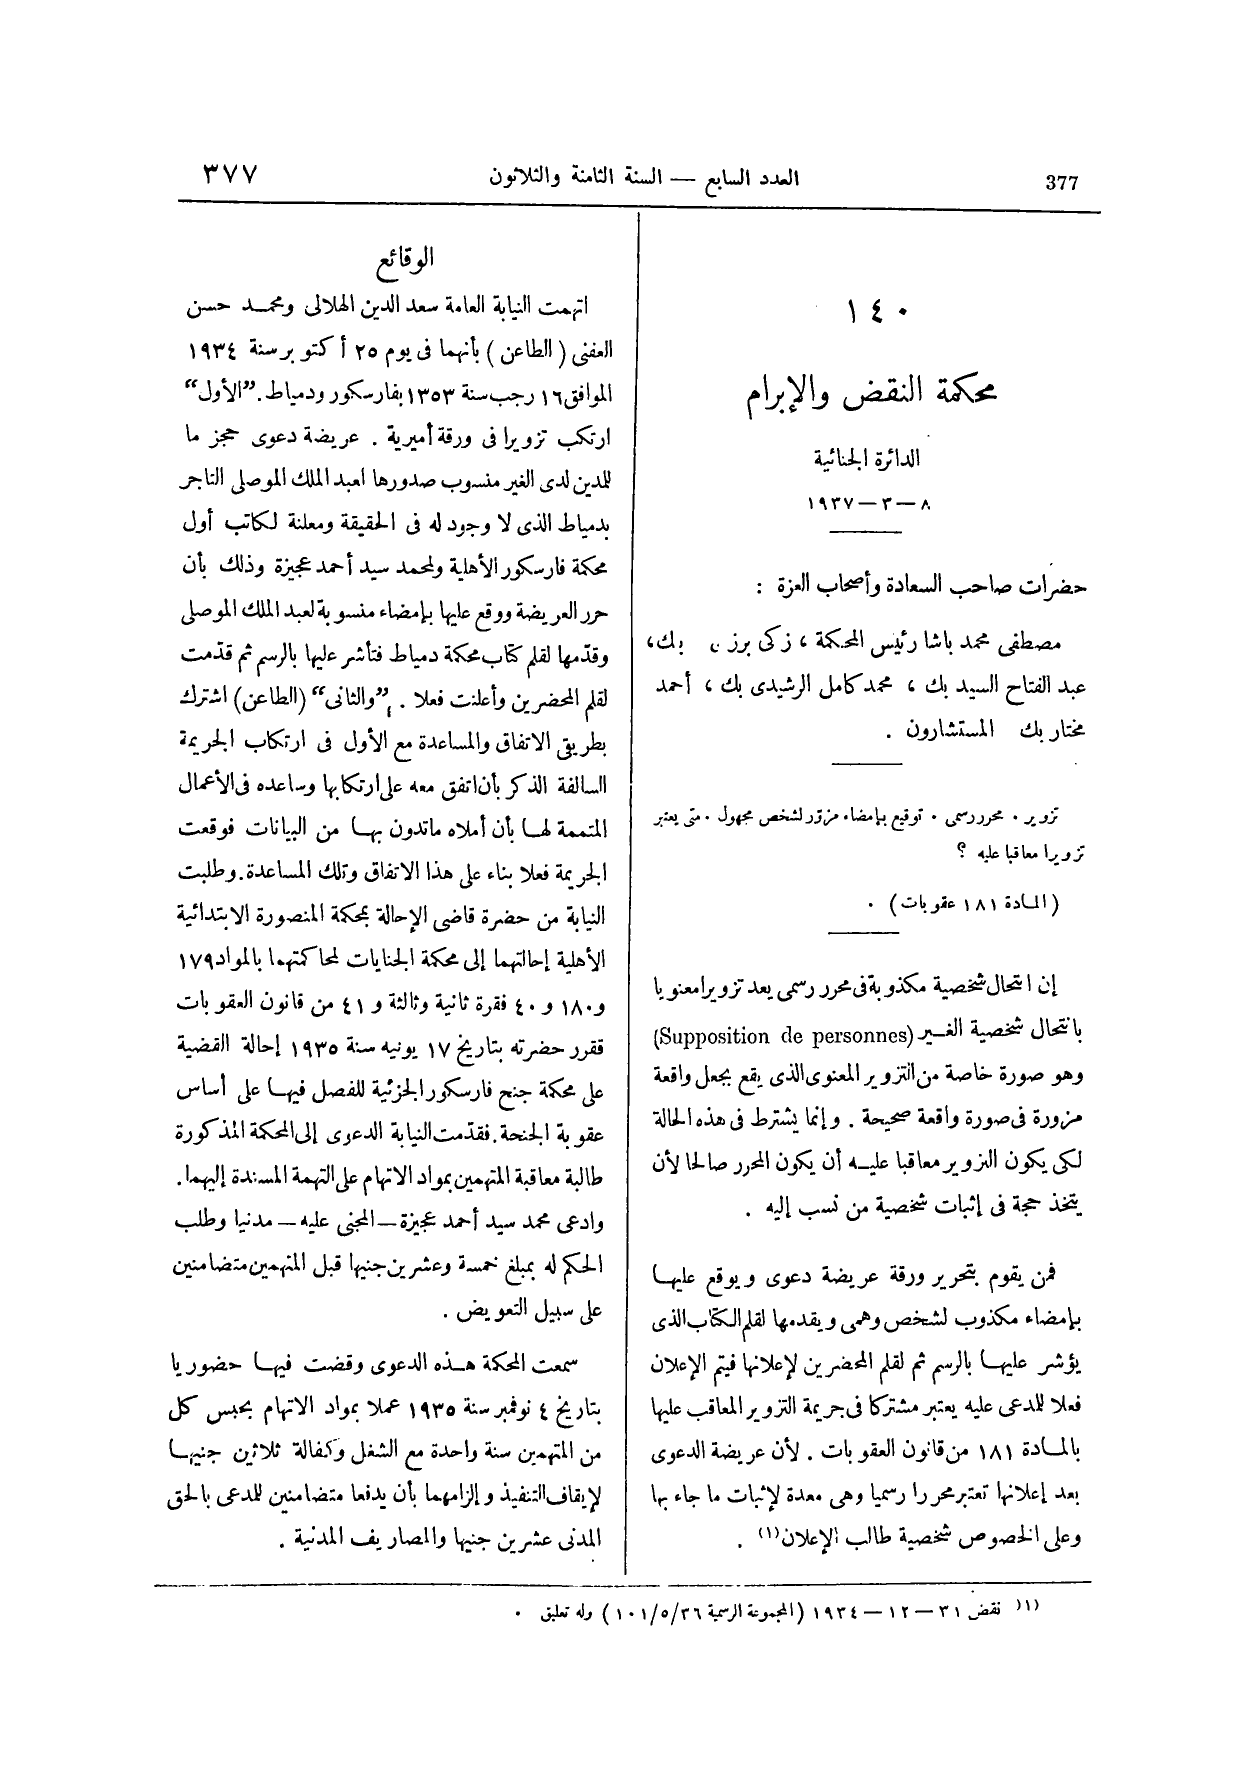 377
العدد السابع — السنة الثامنة والثلاثون
٣٧٧
١٤٠
محكمة النقض والإبرام
الدائرة الجنائية
٨ — ٣ — ١٩٣٧
حضرات صاحب السعادة وأصحاب العزة :
مصطفى محمد باشا رئيس المحكمة ، زكى برزى بك ،
عبد الفتاح السيد بك ، محمد كامل الرشيدى بك ، أحمد
مختار بك المستشارون .
تزوير . محرر رسمى . توقيع بإمضاء مزوّر لشخص مجهول . متى يعتبر
تزويرا معاقبا عليه ؟
(المادة ١٨١ عقوبات) .
إن انتحال شخصية مكذوبة فى محرر رسمى يعد تزويرا معنويا
بانتحال شخصية الغير (Supposition de personnes)
وهو صورة خاصة من التزوير المعنوى الذى يقع بجعل واقعة
مزورة فى صورة واقعة صحيحة . وإنما يشترط فى هذه الحالة
لكى يكون التزوير معاقبا عليه أن يكون المحرر صالحا لأن
يتخذ حجة فى إثبات شخصية من نسب إليه .
فمن يقوم بتحرير ورقة عريضة دعوى ويوقع عليها
بإمضاء مكذوب لشخص وهمى ويقدمها لقلم الكتاب الذى
يؤشر عليها بالرسم ثم لقلم المحضرين لإعلانها فيتم الإعلان
فعلا للمدعى عليه يعتبر مشتركا فى جريمة التزوير المعاقب عليها
بالمادة ١٨١ من قانون العقوبات . لأن عريضة الدعوى
بعد إعلانها تعتبر محررا رسميا وهى معدة لإثبات ما جاء بها
وعلى الخصوص شخصية طالب الإعلان(١) .
الوقائع
اتهمت النيابة العامة سعد الدين الهلالى ومحمد حسن
العفنى (الطاعن) بأنهما فى يوم ٢٥ أكتوبر سنة ١٩٣٤
الموافق ١٦ رجب سنة ١٣٥٣ بفارسكور ودمياط . ”الأول“
ارتكب تزويرا فى ورقة أميرية . عريضة دعوى حجز ما
للمدين لدى الغير منسوب صدورها لعبد الملك الموصلى التاجر
بدمياط الذى لا وجود له فى الحقيقة ومعلنة لكاتب أول
محكمة فارسكور الأهلية ولمحمد سيد أحمد عجيزة وذلك بأن
حرر العريضة ووقع عليها بإمضاء منسوبة لعبد الملك الموصلى
وقدّمها لقلم كتاب محكمة دمياط فتأشر عليها بالرسم ثم قدّمت
لقلم المحضرين وأعلنت فعلا . ”والثانى“ (الطاعن) اشترك
بطريق الاتفاق والمساعدة مع الأول فى ارتكاب الجريمة
السالفة الذكر بأن اتفق معه على ارتكابها وساعده فى الأعمال
المتممة لها بأن أملاه ماتدون بها من البيانات فوقعت
الجريمة فعلا بناء على هذا الاتفاق وتلك المساعدة . وطلبت
النيابة من حضرة قاضى الإحالة بمحكمة المنصورة الابتدائية
الأهلية إحالتهما إلى محكمة الجنايات لمحاكمتهما بالمواد ١٧٩
و١٨٠ و ٤٠ فقرة ثانية وثالثة و ٤١ من قانون العقوبات
فقرر حضرته بتاريخ ١٧ يونيه سنة ١٩٣٥ إحالة القضية
على محكمة جنح فارسكور الجزئية للفصل فيها على أساس
عقوبة الجنحة . فقدّمت النيابة الدعوى إلى المحكمة المذكورة
طالبة معاقبة المتهمين بمواد الاتهام على التهمة المسندة إليهما.
وادعى محمد سيد أحمد عجيزة — المجنى عليه — مدنيا وطلب
الحكم له بمبلغ خمسة وعشرين جنيها قبل المتهمين متضامنين
على سبيل التعويض .
سمعت المحكمة هذه الدعوى وقضت فيها حضوريا
بتاريخ ٤ نوفمبر سنة ١٩٣٥ عملا بمواد الاتهام بحبس كل
من المتهمين سنة واحدة مع الشغل وكفالة ثلاثين جنيها
لإيقاف التنفيذ وإلزامهما بأن يدفعا متضامنين للمدعى بالحق
المدنى عشرين جنيها والمصاريف المدنية .
(١) نقض ٣١ — ١٢ — ١٩٣٤ (المجموعة الرسمية ١٠١/٥/٣٦) وله تعليق .